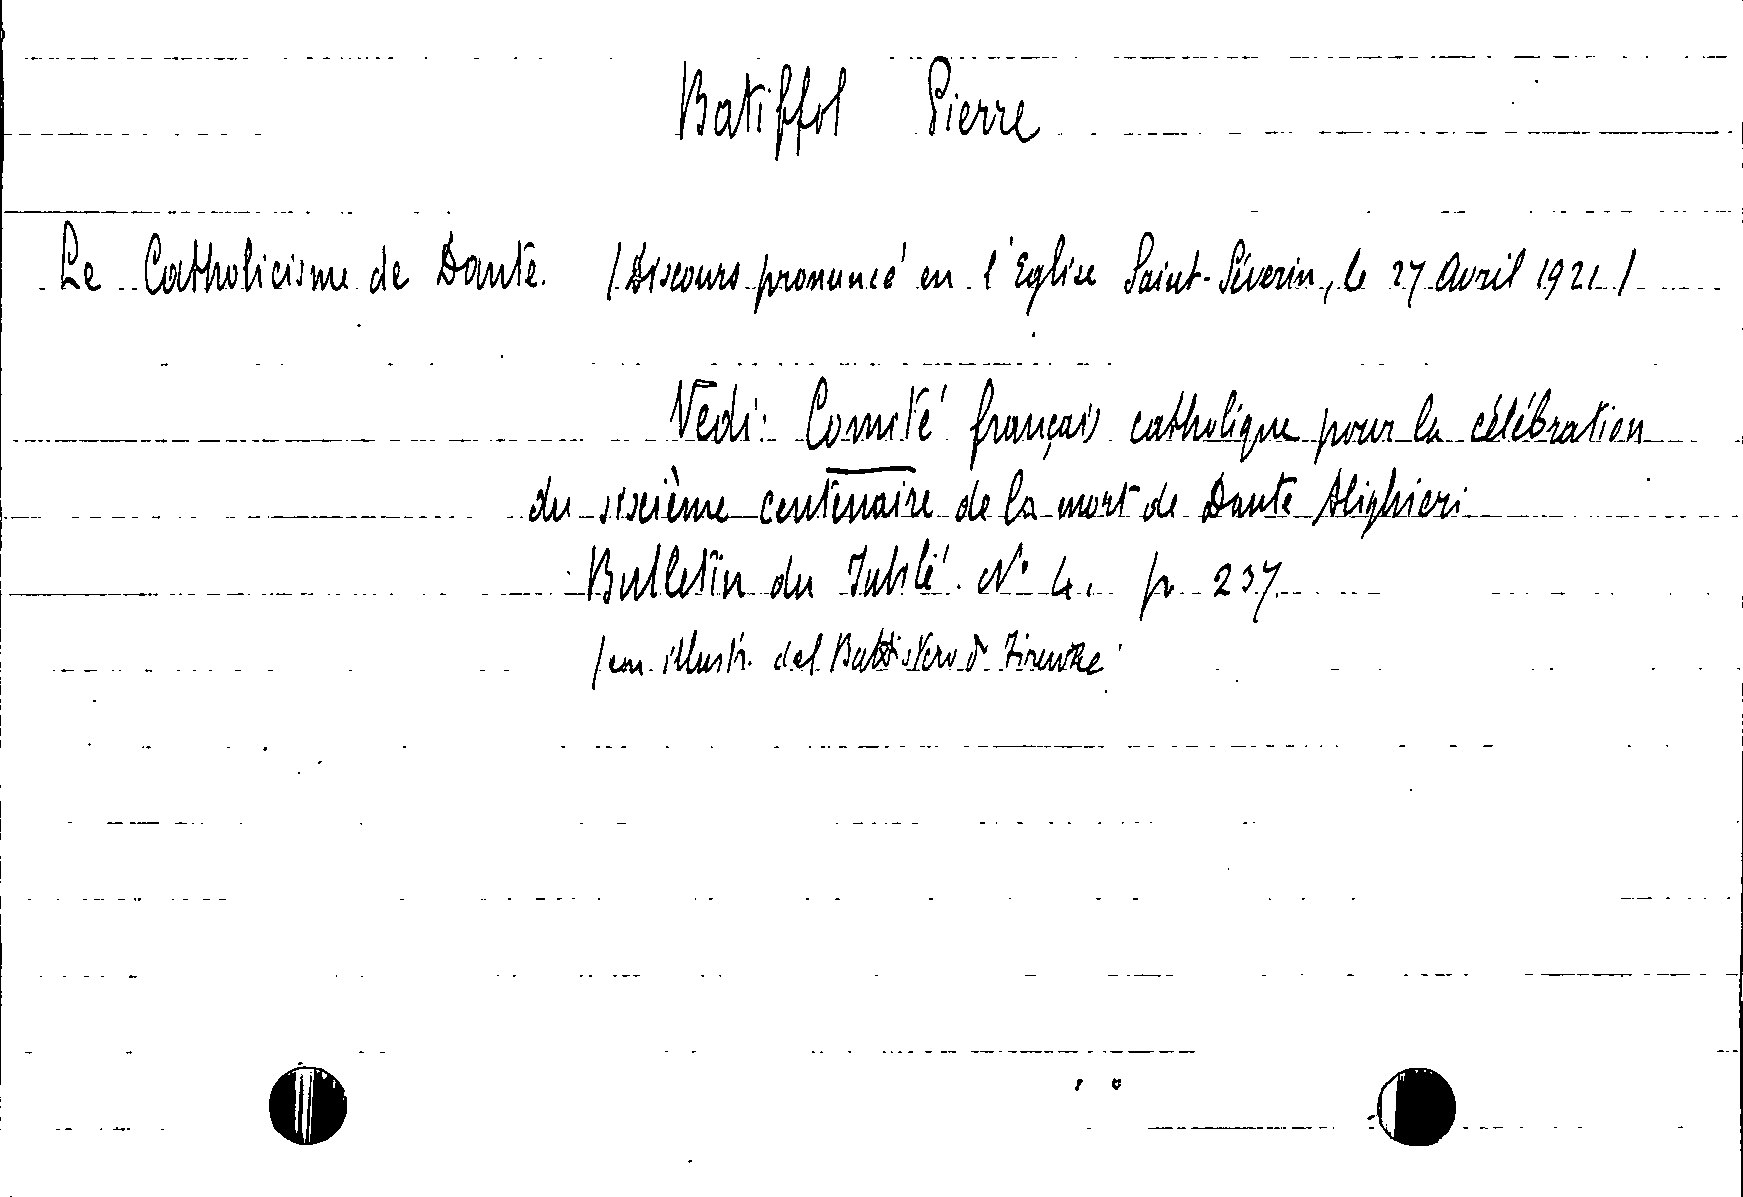 Batiffol Pierre
Le Catholicisme de Dante. (Discours prononcé en l'Eglise Saint-Séverin, le 27 Avril 1921)
Vedi: Comité français catholique pour la célébration
du sixième centenaire de la mort de Dante Alighieri
Bulletin du Jubilé. N° 4. p. 237.
(con illustr. del Battistero di Firenze